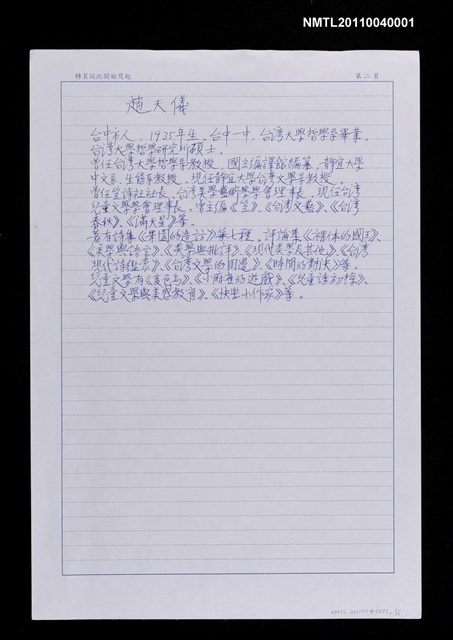 NMTL20110040001
轉頁從此開始寫起
第二頁
趙天儀
台中市人，1935年生，台中一中，台灣大學哲學系畢業、
台灣大學哲學研究所碩士。
曾任台灣大學哲學系教授、國立編譯館編纂、靜宜大學
中文系、生態系教授。現任靜宜大學台灣文學系教授。
曾任笠詩社社長、台灣美學藝術學學會理事長、現任台灣
兒童文學學會理事長。曾主編《笠》、《台灣文藝》、《台灣
春秋》、《滿天星》等。
著有詩集《果園的造訪》等七種。評論集《裸體的國王》、
《美學與語言》、《美學與批評》、《現代美學及其他》、《台灣
現代詩鑑賞》、《台灣文學的周邊》、《時間的對決》等。
兒童文學有《變色鳥》、《小麻雀的遊戲》、《兒童詩初探》、
《兒童文學與美感教育》、《快樂小作家》等。